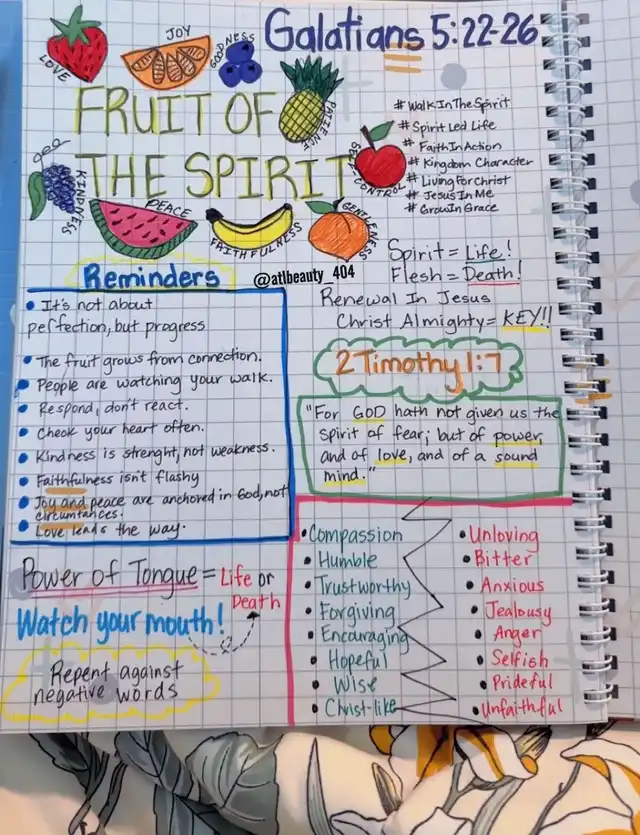 Galatians 5:22-26
LOVE
JOY
GOODNESS
PATIENCE
FRUIT OF
THE SPIRIT
KINDNESS
PEACE
FAITHFULNESS
GENTLENESS
SELF-CONTROL
# WalkInTheSpirit
# Spirit Led Life
# FaithInAction
# Kingdom Character
# LivingForChrist
# JesusInMe
# GrowInGrace
Spirit = Life!
Flesh = Death!
Renewal In Jesus
Christ Almighty = KEY!!
@atlbeauty_404
Reminders
• It's not about
perfection, but progress
• The fruit grows from connection.
• People are watching your walk.
• Respond, don't react.
• Check your heart often.
• Kindness is strenght, not weakness.
• Faithfulness isn't flashy
• Joy and peace are anchored in God, not
circumtances.
• Love leads the way.
2 Timothy 1:7
"For GOD hath not given us the
spirit of fear; but of power,
and of love, and of a sound
mind."
Power of Tongue = Life or
Death
Watch your mouth!
Repent against
negative words
• Compassion
• Humble
• Trustworthy
• Forgiving
• Encouraging
• Hopeful
• Wise
• Christ-like
• Unloving
• Bitter
• Anxious
• Jealousy
• Anger
• Selfish
• Prideful
• Unfaithful